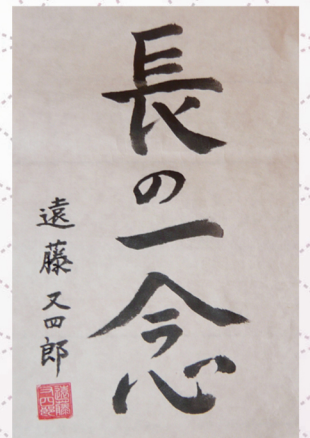 長の一念
遠藤又四郎